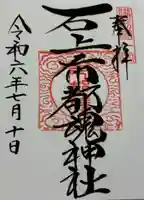 奉拝
石上布都魂神社
令和六年七月十日